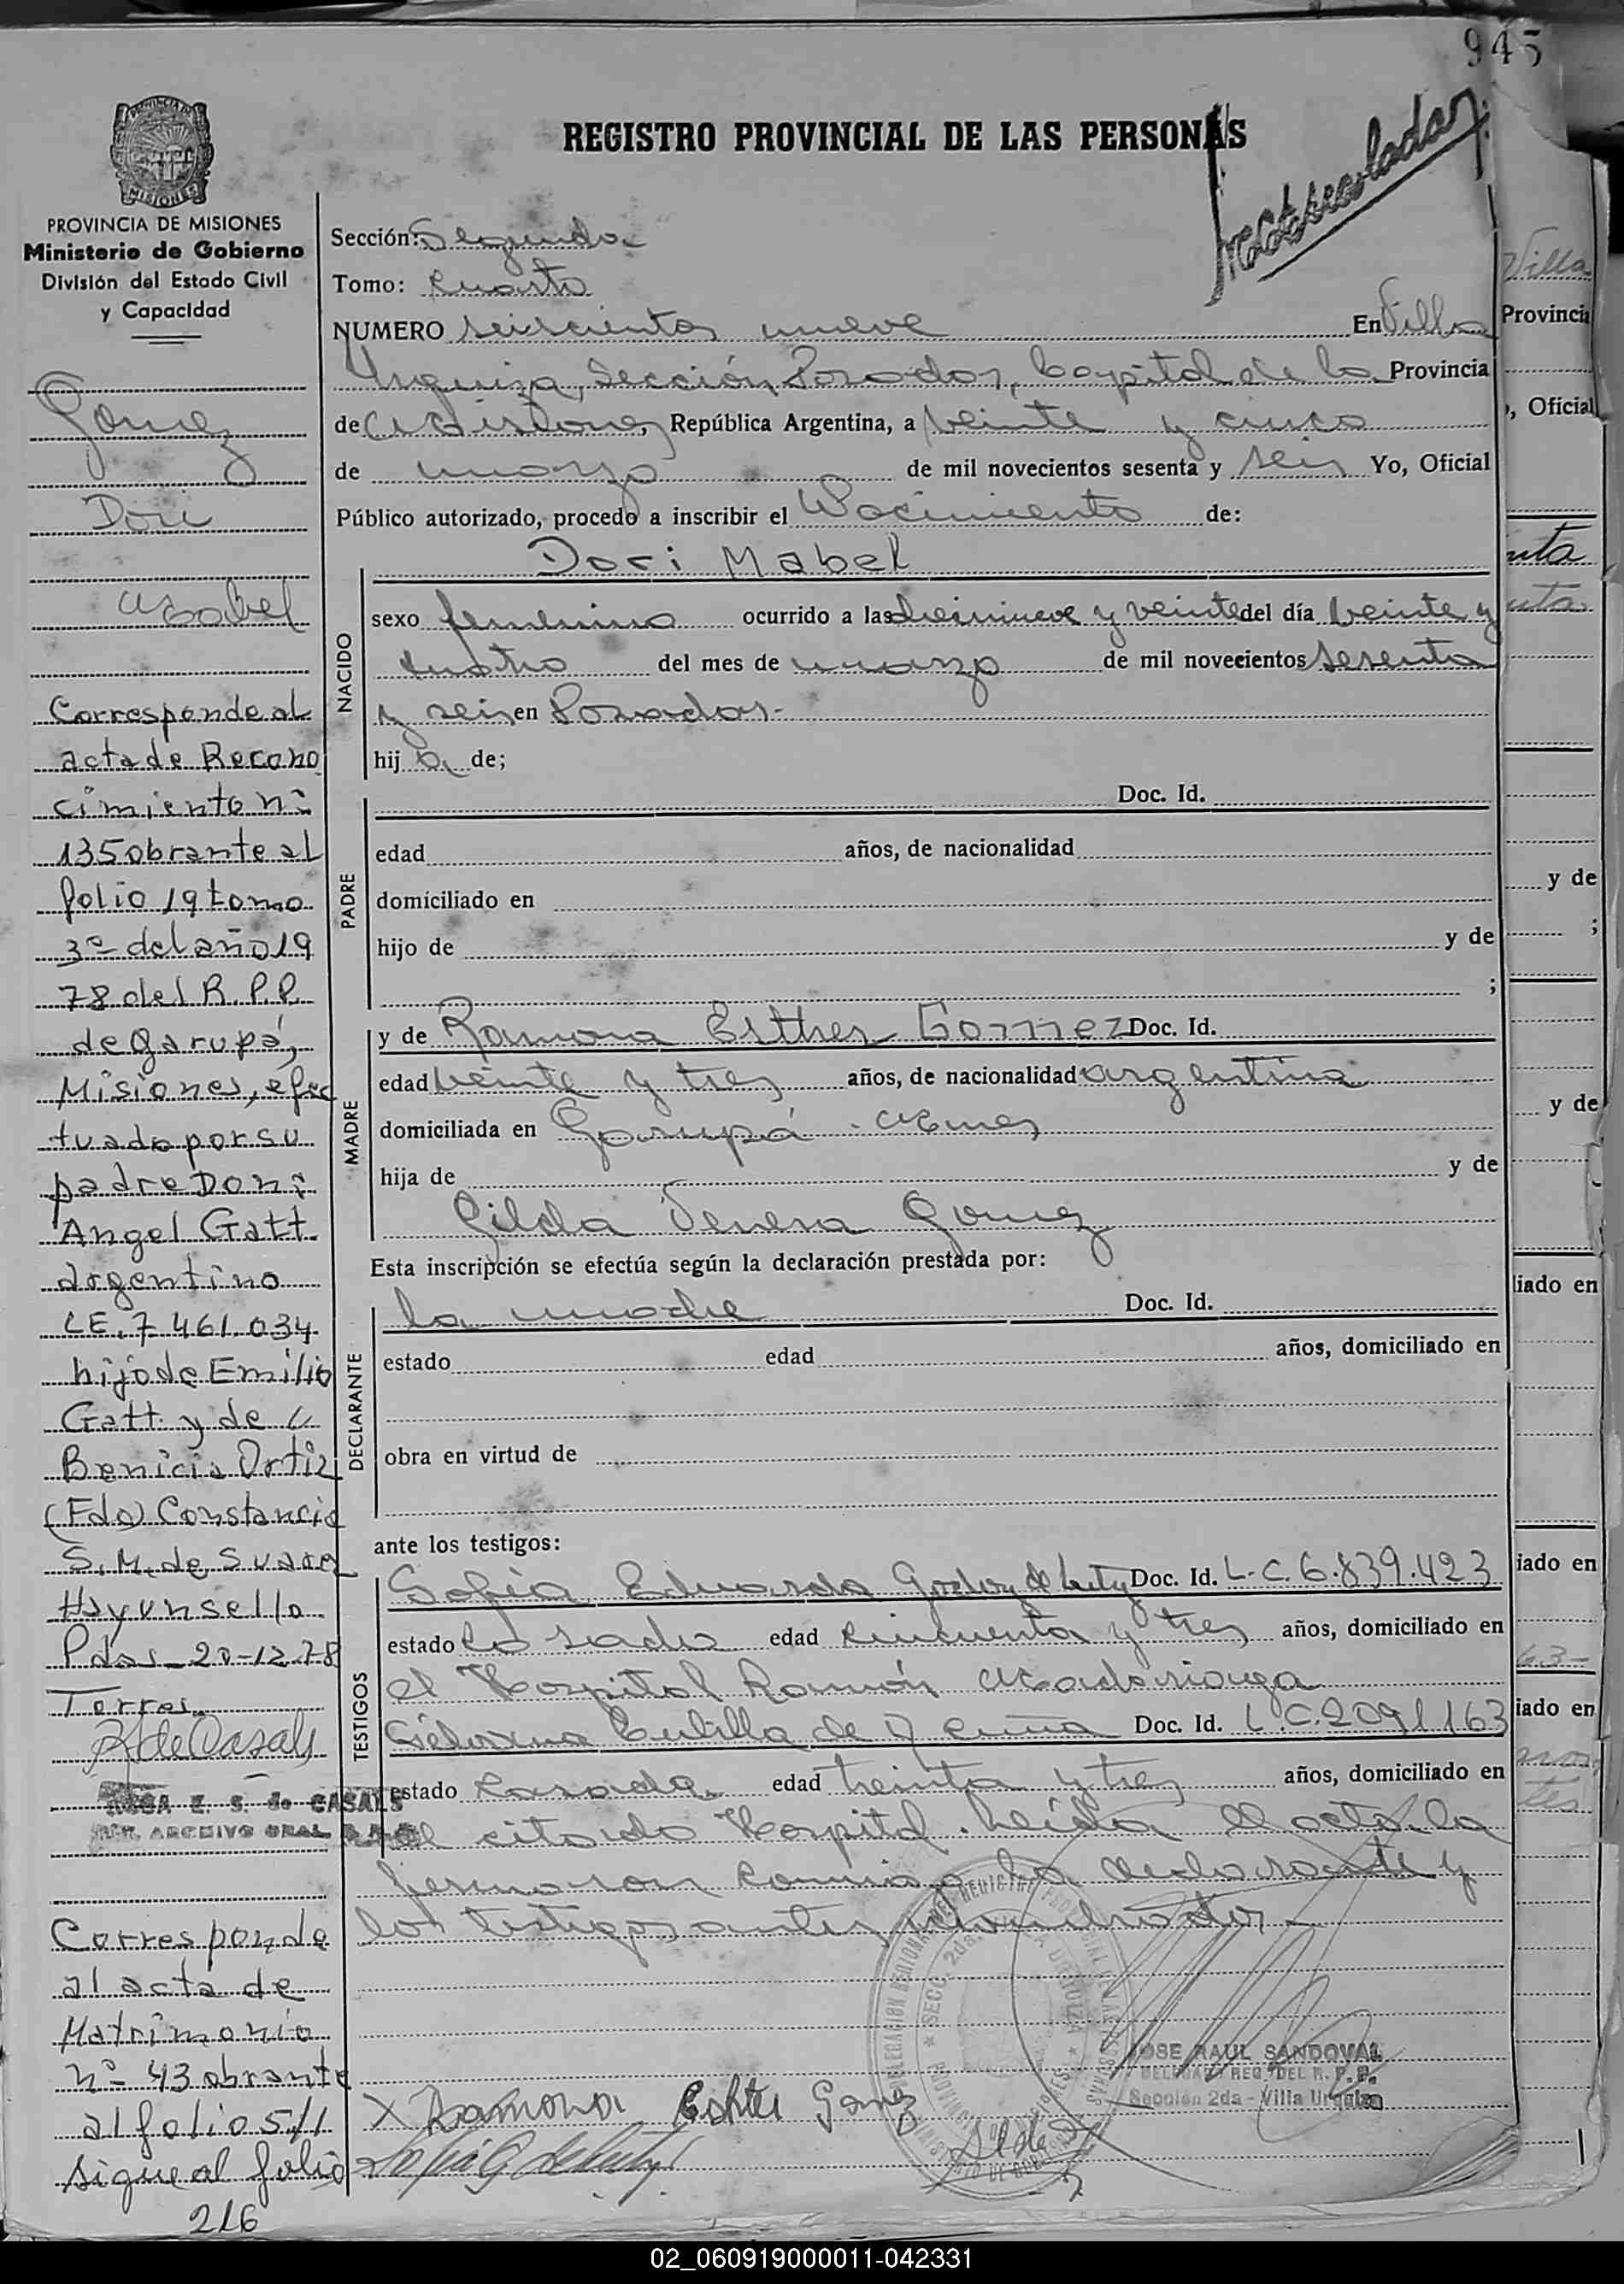 945
REGISTRO PROVINCIAL DE LAS PERSONAS
PROVINCIA DE MISIONES
MISIONES
PROVINCIA DE MISIONES
Ministerio de Gobierno
División del Estado Civil
y Capacidad
Gomez
Dori
Mabel
Corresponde al
acta de Recono
cimiento nº
135 obrante al
folio 19 tomo
3º del año 19
78 del R.P.P.
de Garupá,
Misiones, efec
tuado por su
padre Don:
Angel Gatt.
argentino
L.E. 7 461.034
hijo de Emilio
Gatt y de
Benicia Ortiz
(Fdo) Constancia
S. M. de Suarez
Hay un sello
Pdas. 20-12-78
Torres
R. de Casals
ROSA E. S. de CASALS
ARCHIVO GRAL
Corresponde
al acta de
Matrimonio
nº 43 obrante
al folio 5/1
sigue al folio
216
Sección: Segunda
Tomo: Cuarto
NUMERO seiscientos nueve En Villa
Urquiza, Sección Posadas, Capital de la Provincia
de Misiones, República Argentina, a veinte y cinco
de marzo de mil novecientos sesenta y seis Yo, Oficial
Público autorizado, procedo a inscribir el Nacimiento de:
Dori Mabel
NACIDO
sexo femenino ocurrido a las diecinueve y veinte del día veinte y
cuatro del mes de marzo de mil novecientos sesenta
y seis en Posadas.-
hij a de;
PADRE
Doc. Id.
edad años, de nacionalidad
domiciliado en
hijo de y de
;
MADRE
y de Ramona Esther Gomez Doc. Id.
edad veinte y tres años, de nacionalidad argentina
domiciliada en Garupá - Mnes
hija de y de
Gilda Gomez
Esta inscripción se efectúa según la declaración prestada por:
DECLARANTE
la madre Doc. Id.
estado edad años, domiciliado en
obra en virtud de
ante los testigos:
TESTIGOS
Sofía Eduarda Godoy de Doc. Id. L.C. 6.839.423
estado casada edad cincuenta y tres años, domiciliado en
el Hospital Ramón Madariaga
de Doc. Id. L.C. 2091163
estado casada edad treinta y tres años, domiciliado en
el citado Hospital. Leída el acta la
firmaron conmigo la declarante y
los testigos antes nombrados.-
JOSE RAUL SANDOVAL
DELEGADO REG. DEL R. P. P.
Sección 2da - Villa Urquiza
X Ramona Esther Gomez
Villa
Provincia
, Oficial
y de
;
y de
liado en
iado en
63-
iado en
02_060919000011-042331